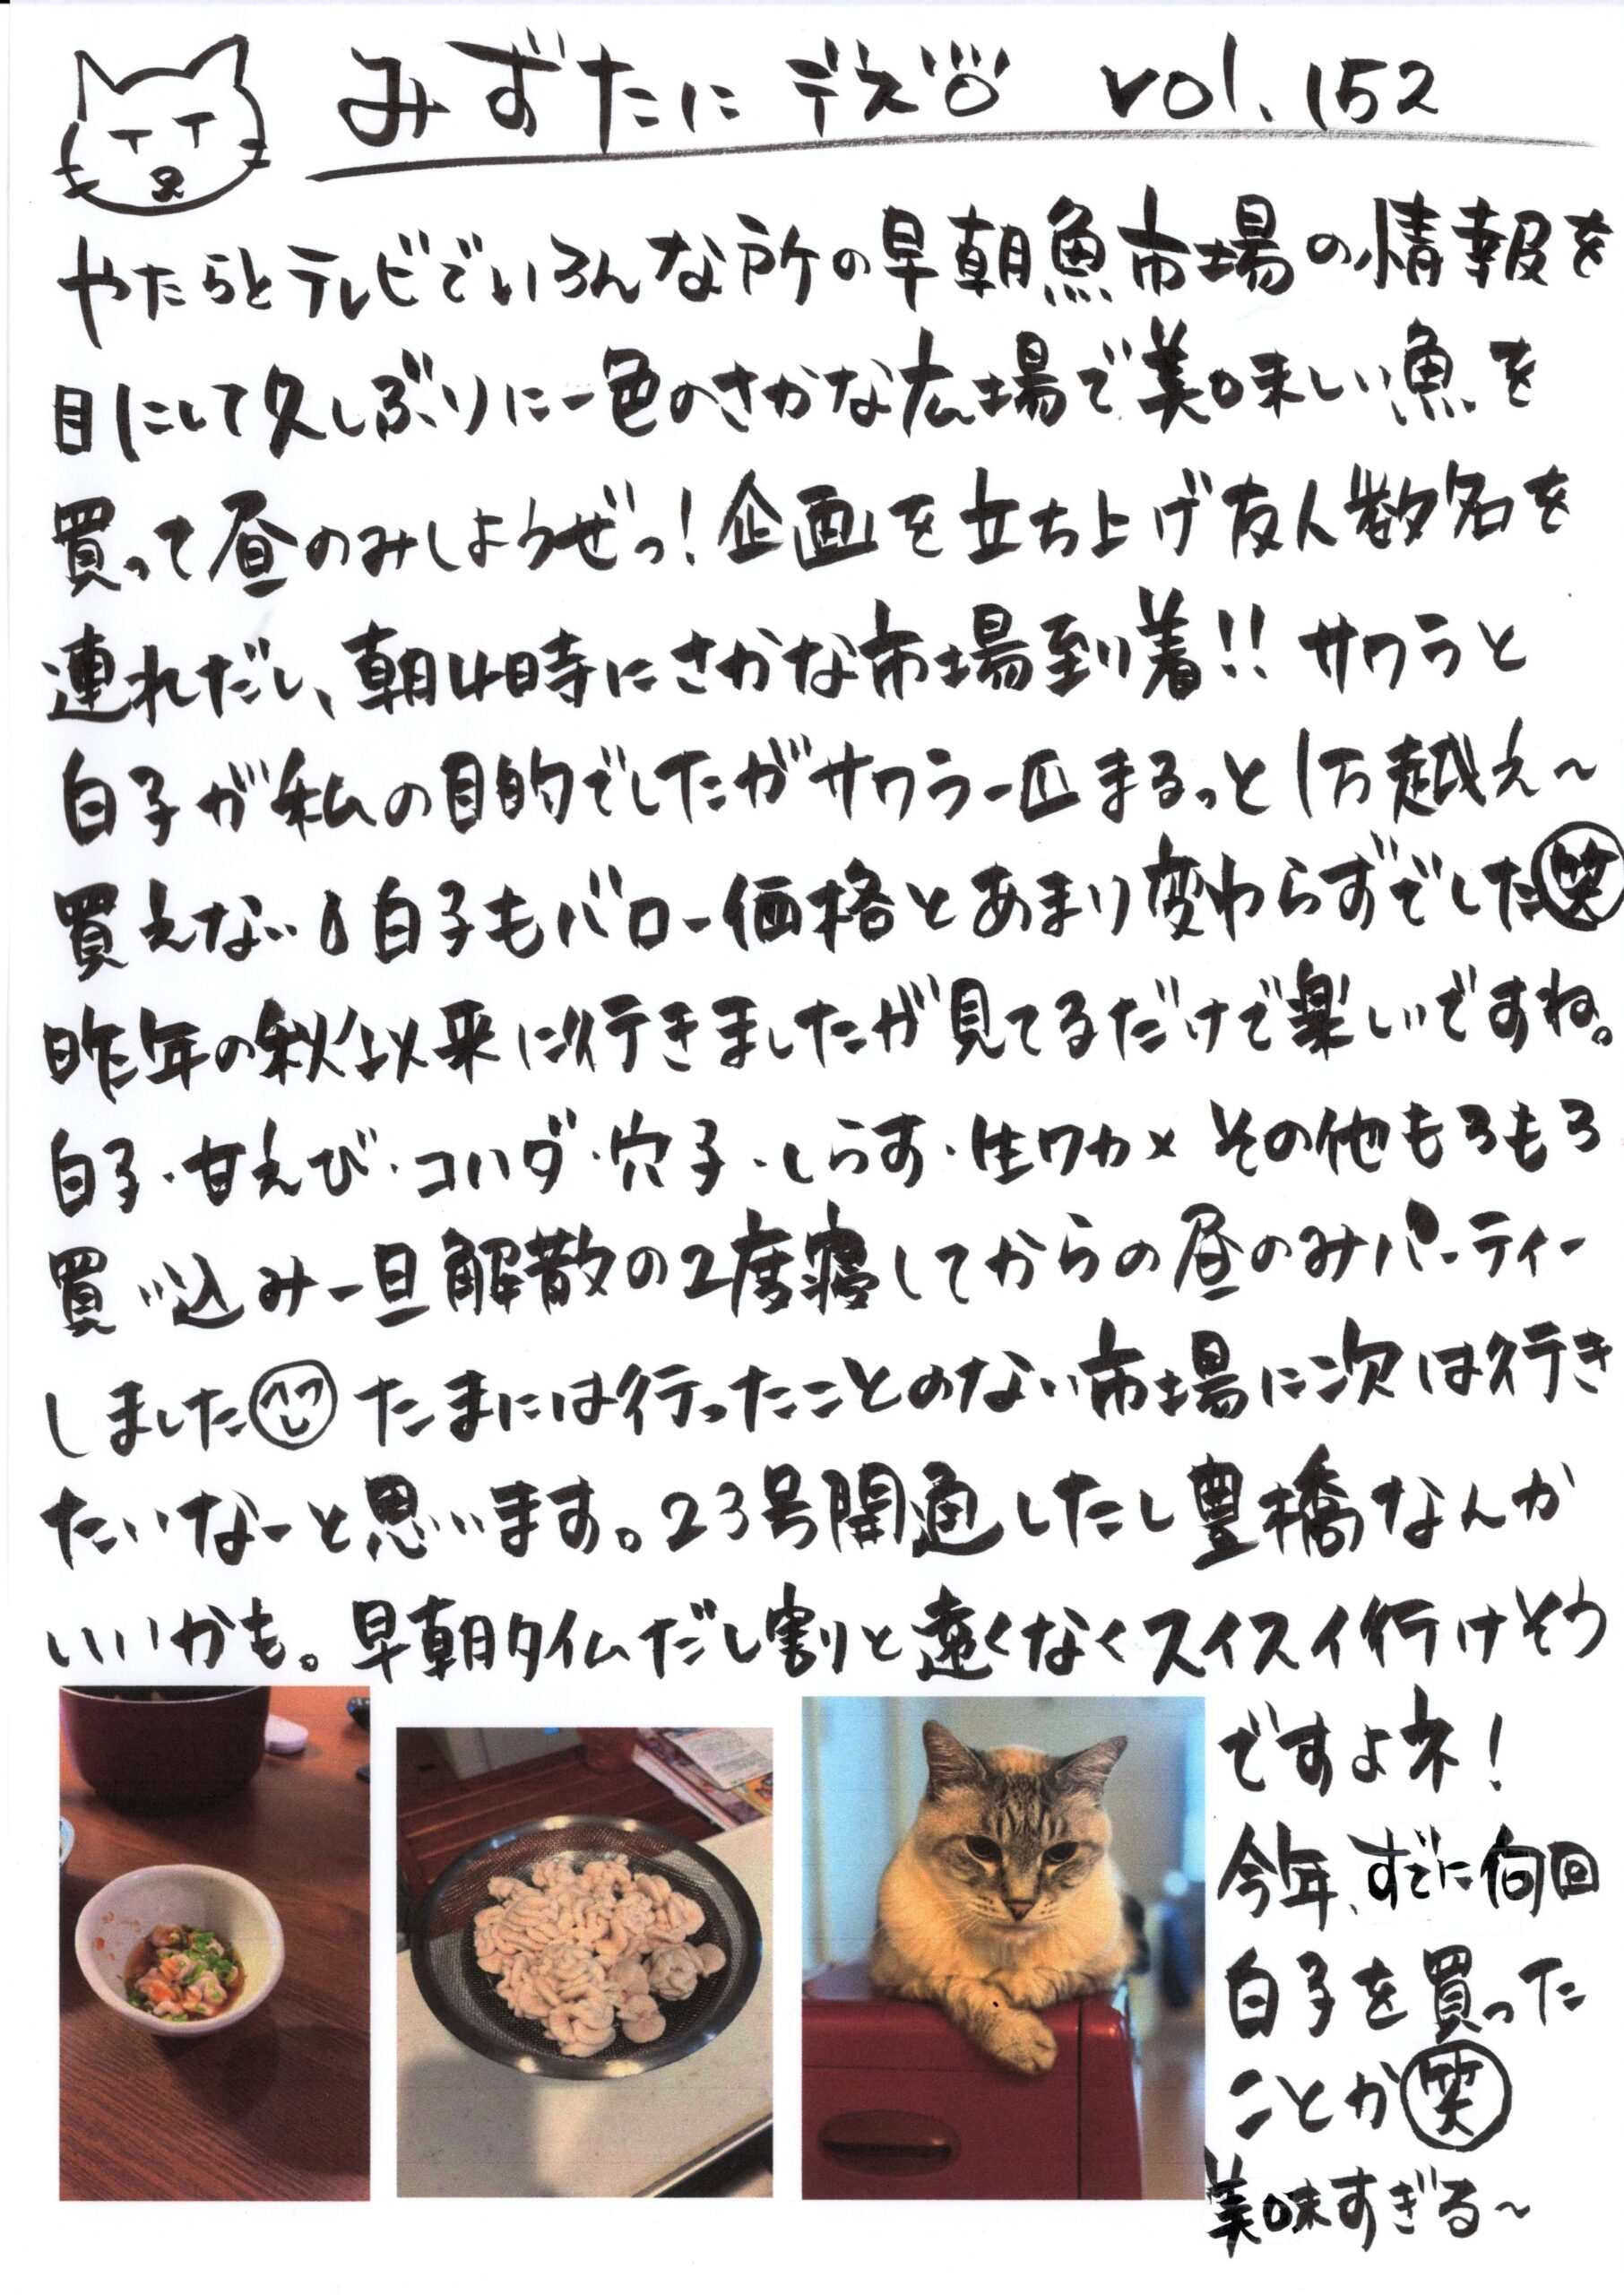 みずたにデス vol.152
やたらとテレビでいろんな所の早朝魚市場の情報を
目にして久しぶりに一色のさかな広場で美味しい魚を
買って昼のみしようぜっ!企画を立ち上げ友人数名を
連れだし、朝4時にさかな市場到着!!サワラと
白子が私の目的でしたがサワラ一匹まるっと1万越え〜
買えない。白子もバロー価格とあまり変わらずでした笑
昨年の秋以来に行きましたが見てるだけで楽しいですね。
白子・甘えび・コハダ・穴子・しらす・生ワカメその他もろもろ
買い込み一旦解散の2度寝してからの昼のみパーティー
しました たまには行ったことのない市場に次は行き
たいなーと思います。23号開通したし豊橋なんか
いいかも。早朝タイムだし割と遠くなくスイスイ行けそう
ですよネ!
今年、すでに何回
白子を買った
ことか笑
美味すぎる〜